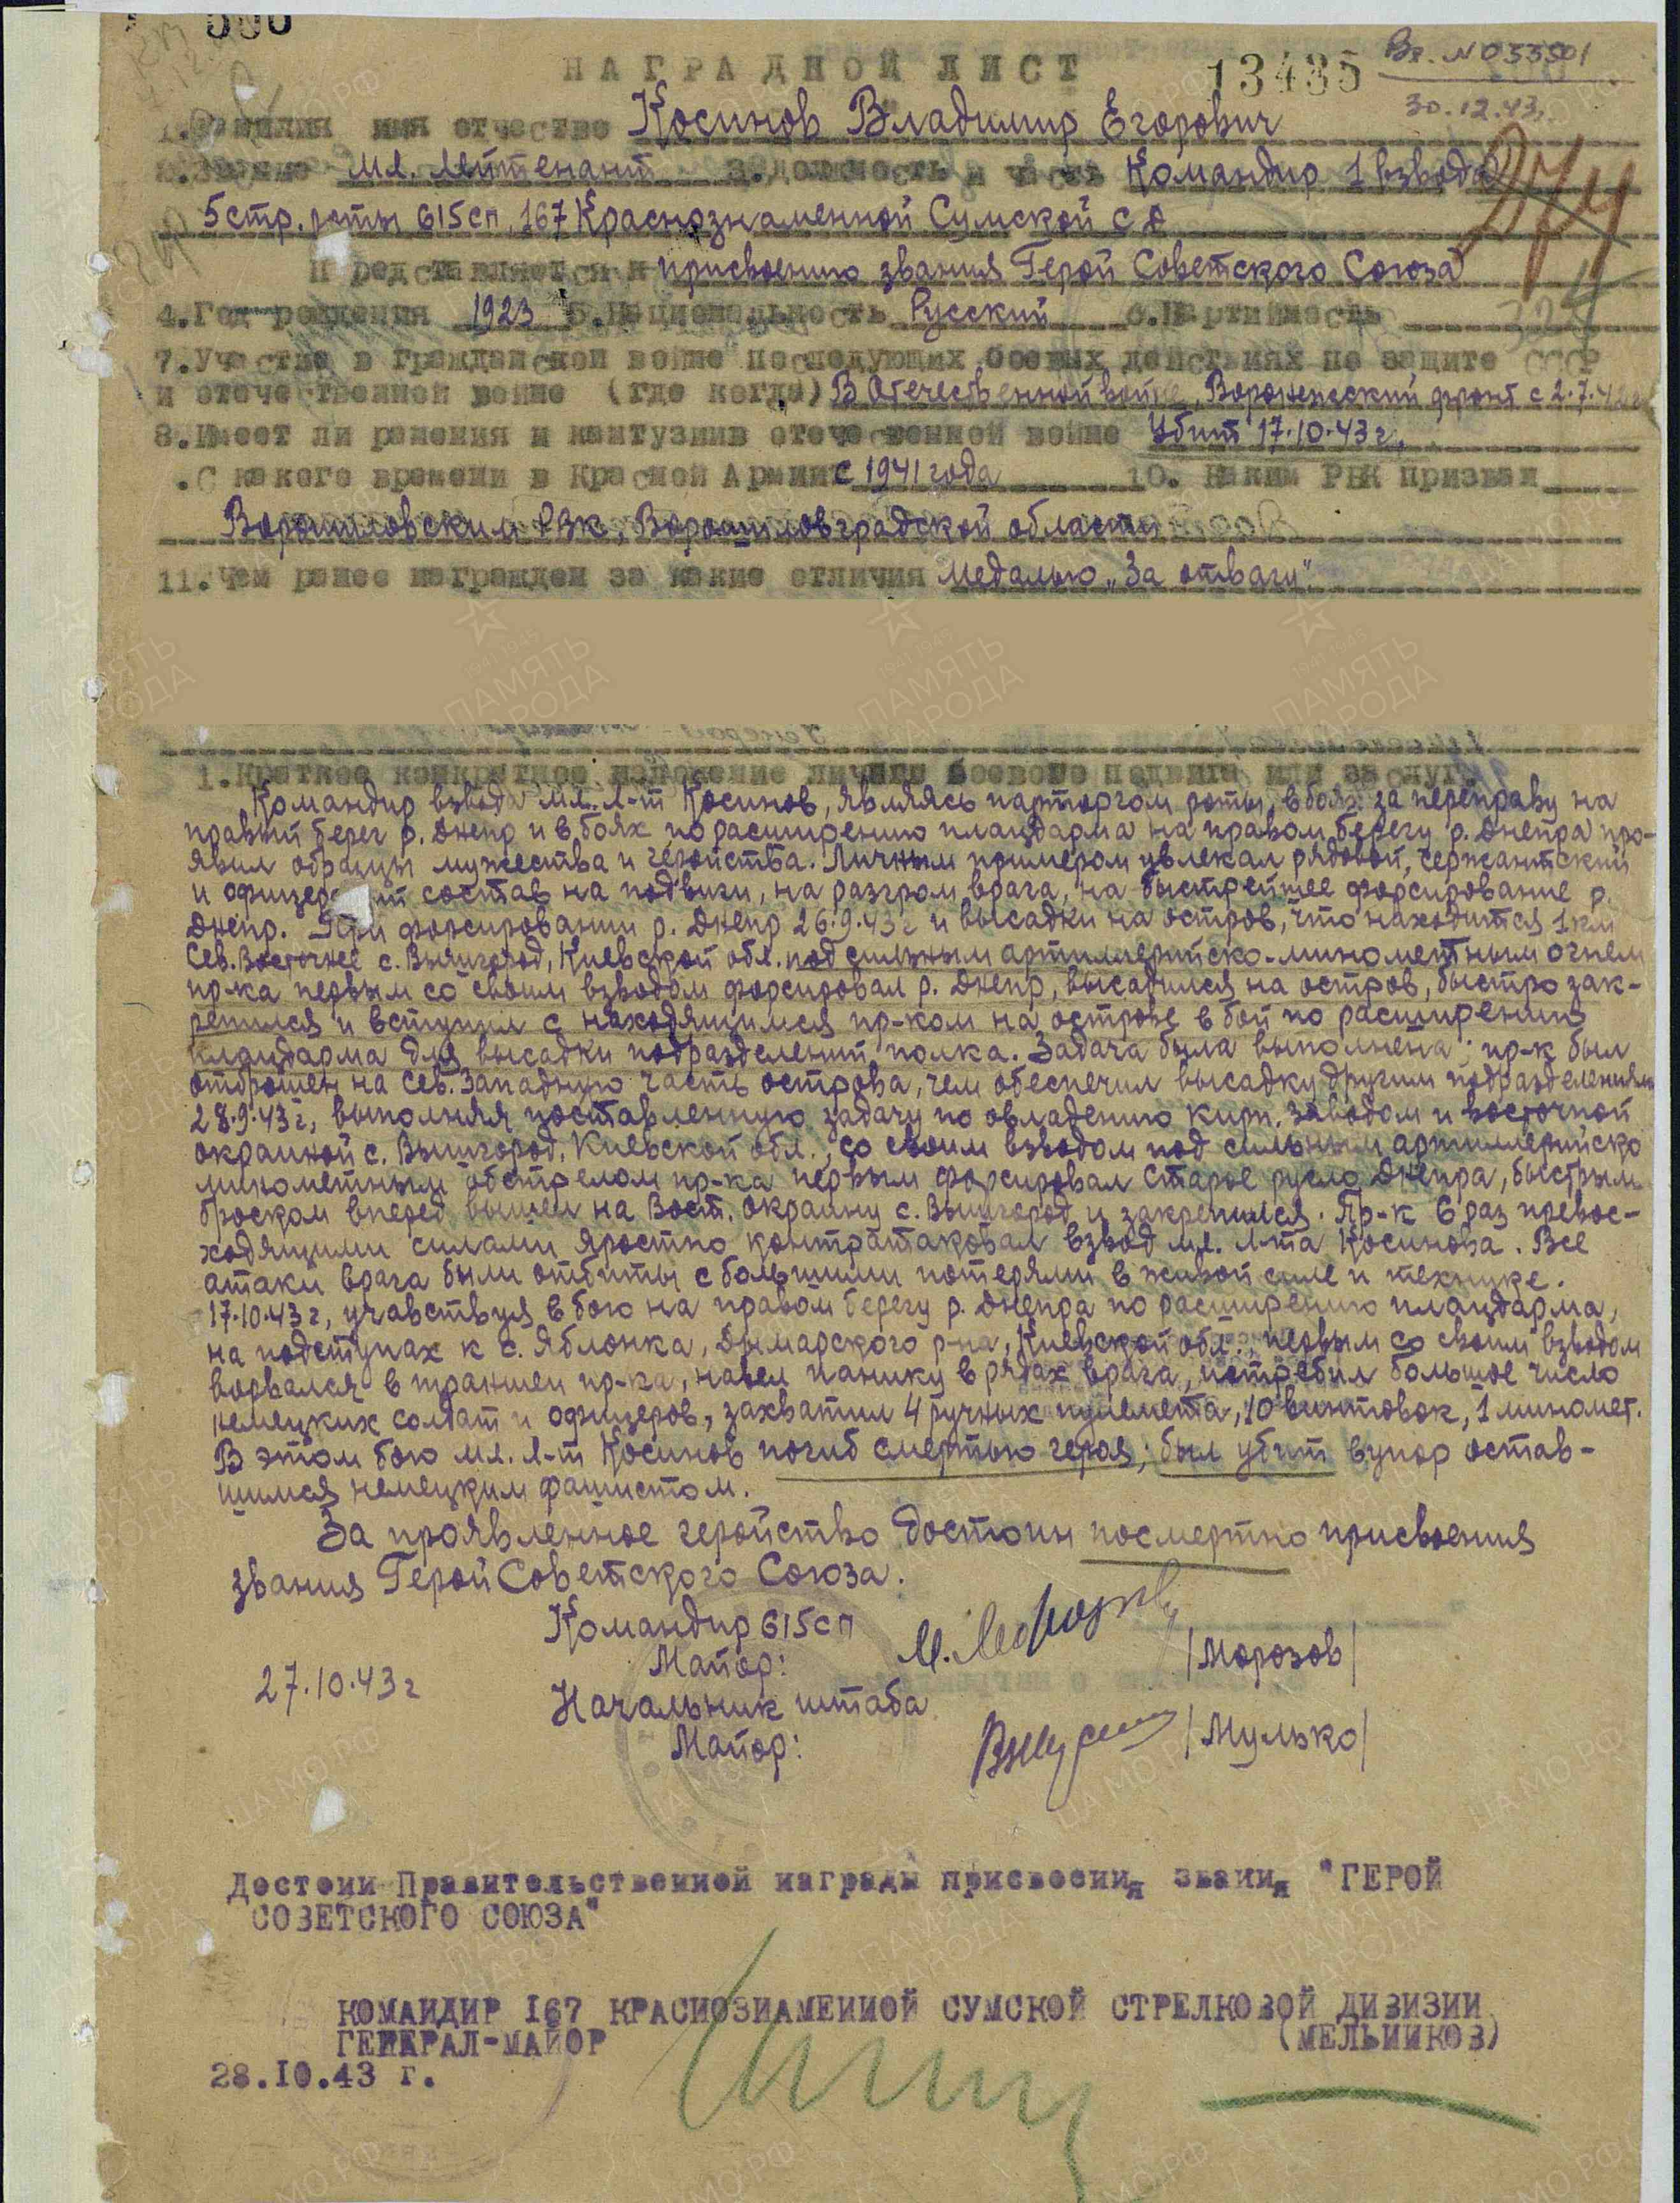 НАГРАДНОЙ ЛИСТ
13435
Вх. № 033501
30.12.43.
1. Фамилия имя отчество Косинов Владимир Егорович
2. Звание мл. лейтенант 3. Должность и часть Командир 1 взвода
5 стр. роты 615 сп, 167 Краснознаменной Сумской СД
Представляется к присвоению звания Герой Советского Союза
4. Год рождения 1923 5. Национальность Русский 6. Партийность
7. Участие в гражданской войне последующих боевых действиях по защите СССР
и отечественной войне (где когда) В Отечественной войне, Воронежский фронт с 2.7.42г
8. Имеет ли ранения и контузии в отечественной войне Убит 17.10.43г.
. С какого времени в Красной Армии с 1941 года 10. Каким РВК призван
Ворошиловским РВК, Ворошиловградской области
11. Чем ранее награжден за какие отличия медалью „За отвагу“.
1. Краткое конкретное изложение личного боевого подвига или заслуг.
Командир взвода мл. л-т Косинов, являясь парторгом роты, в боях за переправу на
правый берег р. Днепр и в боях по расширению плацдарма на правом берегу р. Днепра про-
явил образцы мужества и геройства. Личным примером увлекал рядовой, сержантский
и офицерский состав на подвиги, на разгром врага, на быстрейшее форсирование р.
Днепр. При форсировании р. Днепр 26.9.43г и высадки на остров, что находится 1 км
Сев. Восточнее с. Вышгород, Киевской обл. под сильным артиллерийско-минометным огнем
пр-ка первым со своим взводом форсировал р. Днепр, высадился на остров, быстро зак-
репился и вступил с находящимся пр-ком на острове в бой по расширению
плацдарма для высадки подразделений полка. Задача была выполнена; пр-к был
отброшен на Сев. Западную часть острова, чем обеспечил высадку другим подразделениям
28.9.43г, выполняя поставленную задачу по овладению кирп. заводом и восточной
окраиной с. Вышгород, Киевской обл., со своим взводом под сильным артиллерийско
минометным обстрелом пр-ка первым форсировал Старое русло Днепра, быстрым
броском вперед вышел на Вост. окраину с. Вышгород и закрепился. Пр-к 6 раз превос-
ходящими силами яростно контратаковал взвод мл. л-та Косинова. Все
атаки врага были отбиты с большими потерями в живой силе и технике.
17.10.43г, учавствуя в бою на правом берегу р. Днепра по расширению плацдарма,
на подступах к с. Яблонка, Дымарского р-на, Киевской обл., первым со своим взводом
ворвался в траншеи пр-ка, навел панику в рядах врага, истребил большое число
немецких солдат и офицеров, захватил 4 ручных пулемета, 10 винтовок, 1 миномет.
В этом бою мл. л-т Косинов погиб смертью героя; был убит в упор остав-
шимся немецким фашистом.
За проявленное геройство достоин посмертно присвоения
звания Герой Советского Союза.
Командир 615 сп
Майор: /Морозов/
27.10.43г
Начальник штаба
Майор: /Мулько/
Достоин Правительственной награды присвоения звания "ГЕРОЙ
СОВЕТСКОГО СОЮЗА"
КОМАНДИР 167 КРАСНОЗНАМЕННОЙ СУМСКОЙ СТРЕЛКОВОЙ ДИВИЗИИ
ГЕНЕРАЛ-МАЙОР (МЕЛЬНИКОВ)
28.10.43 г.